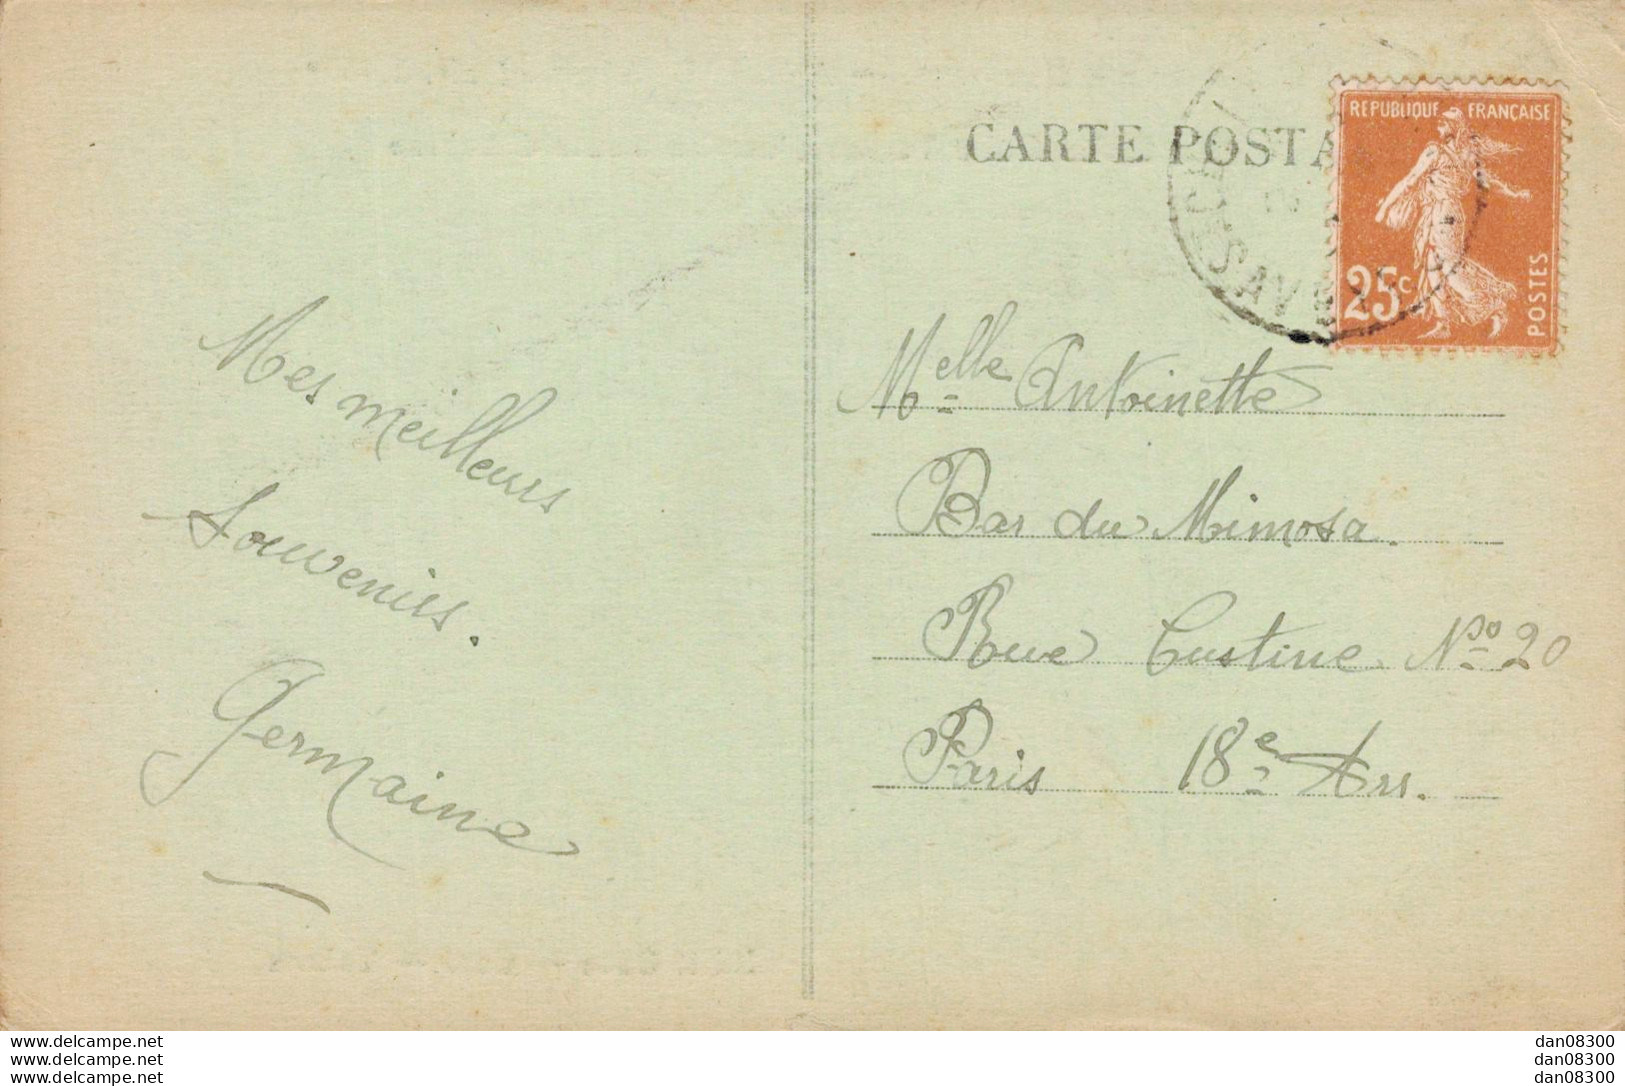 CARTE POSTA
REPUBLIQUE FRANÇAISE
25c
POSTES
Mes meilleurs
Souvenirs.
Germaine
Melle Antoinette
Bar du Mimosa.
Rue Custine No 20
Paris 18e Arr.
www.delcampe.net
www.delcampe.net
www.delcampe.net
dan08300
dan08300
dan08300